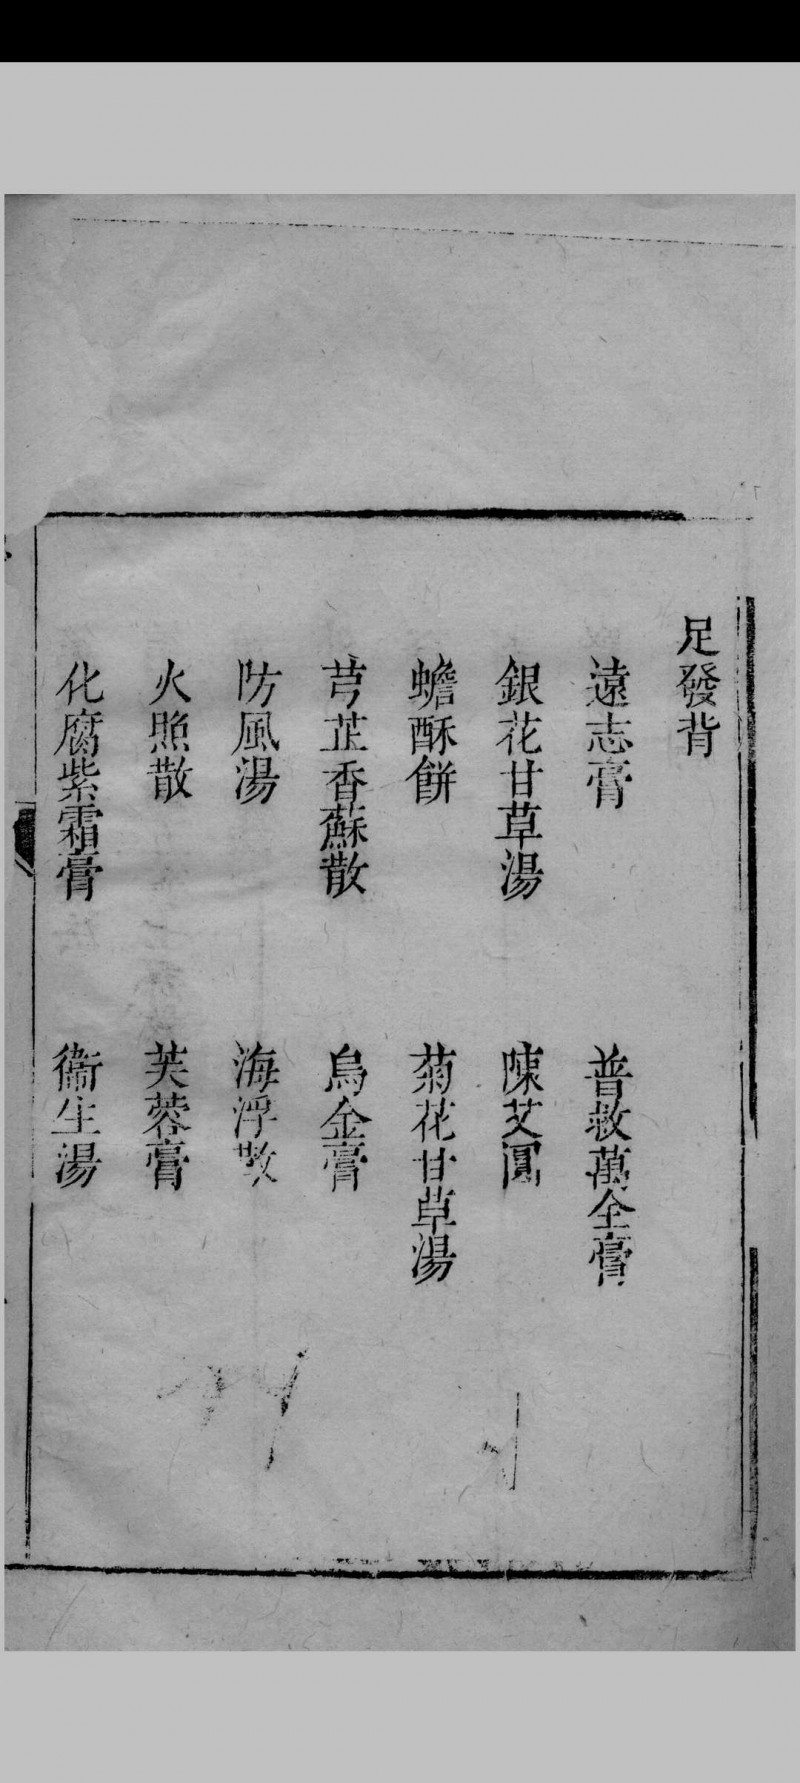 足發背
遠志膏　普救萬全膏
銀花甘草湯　陳艾圓
蟾酥餅　菊花甘草湯
芎芷香蘇散　烏金膏
防風湯　海浮散
火照散　芙蓉膏
化腐紫霜膏　衞生湯